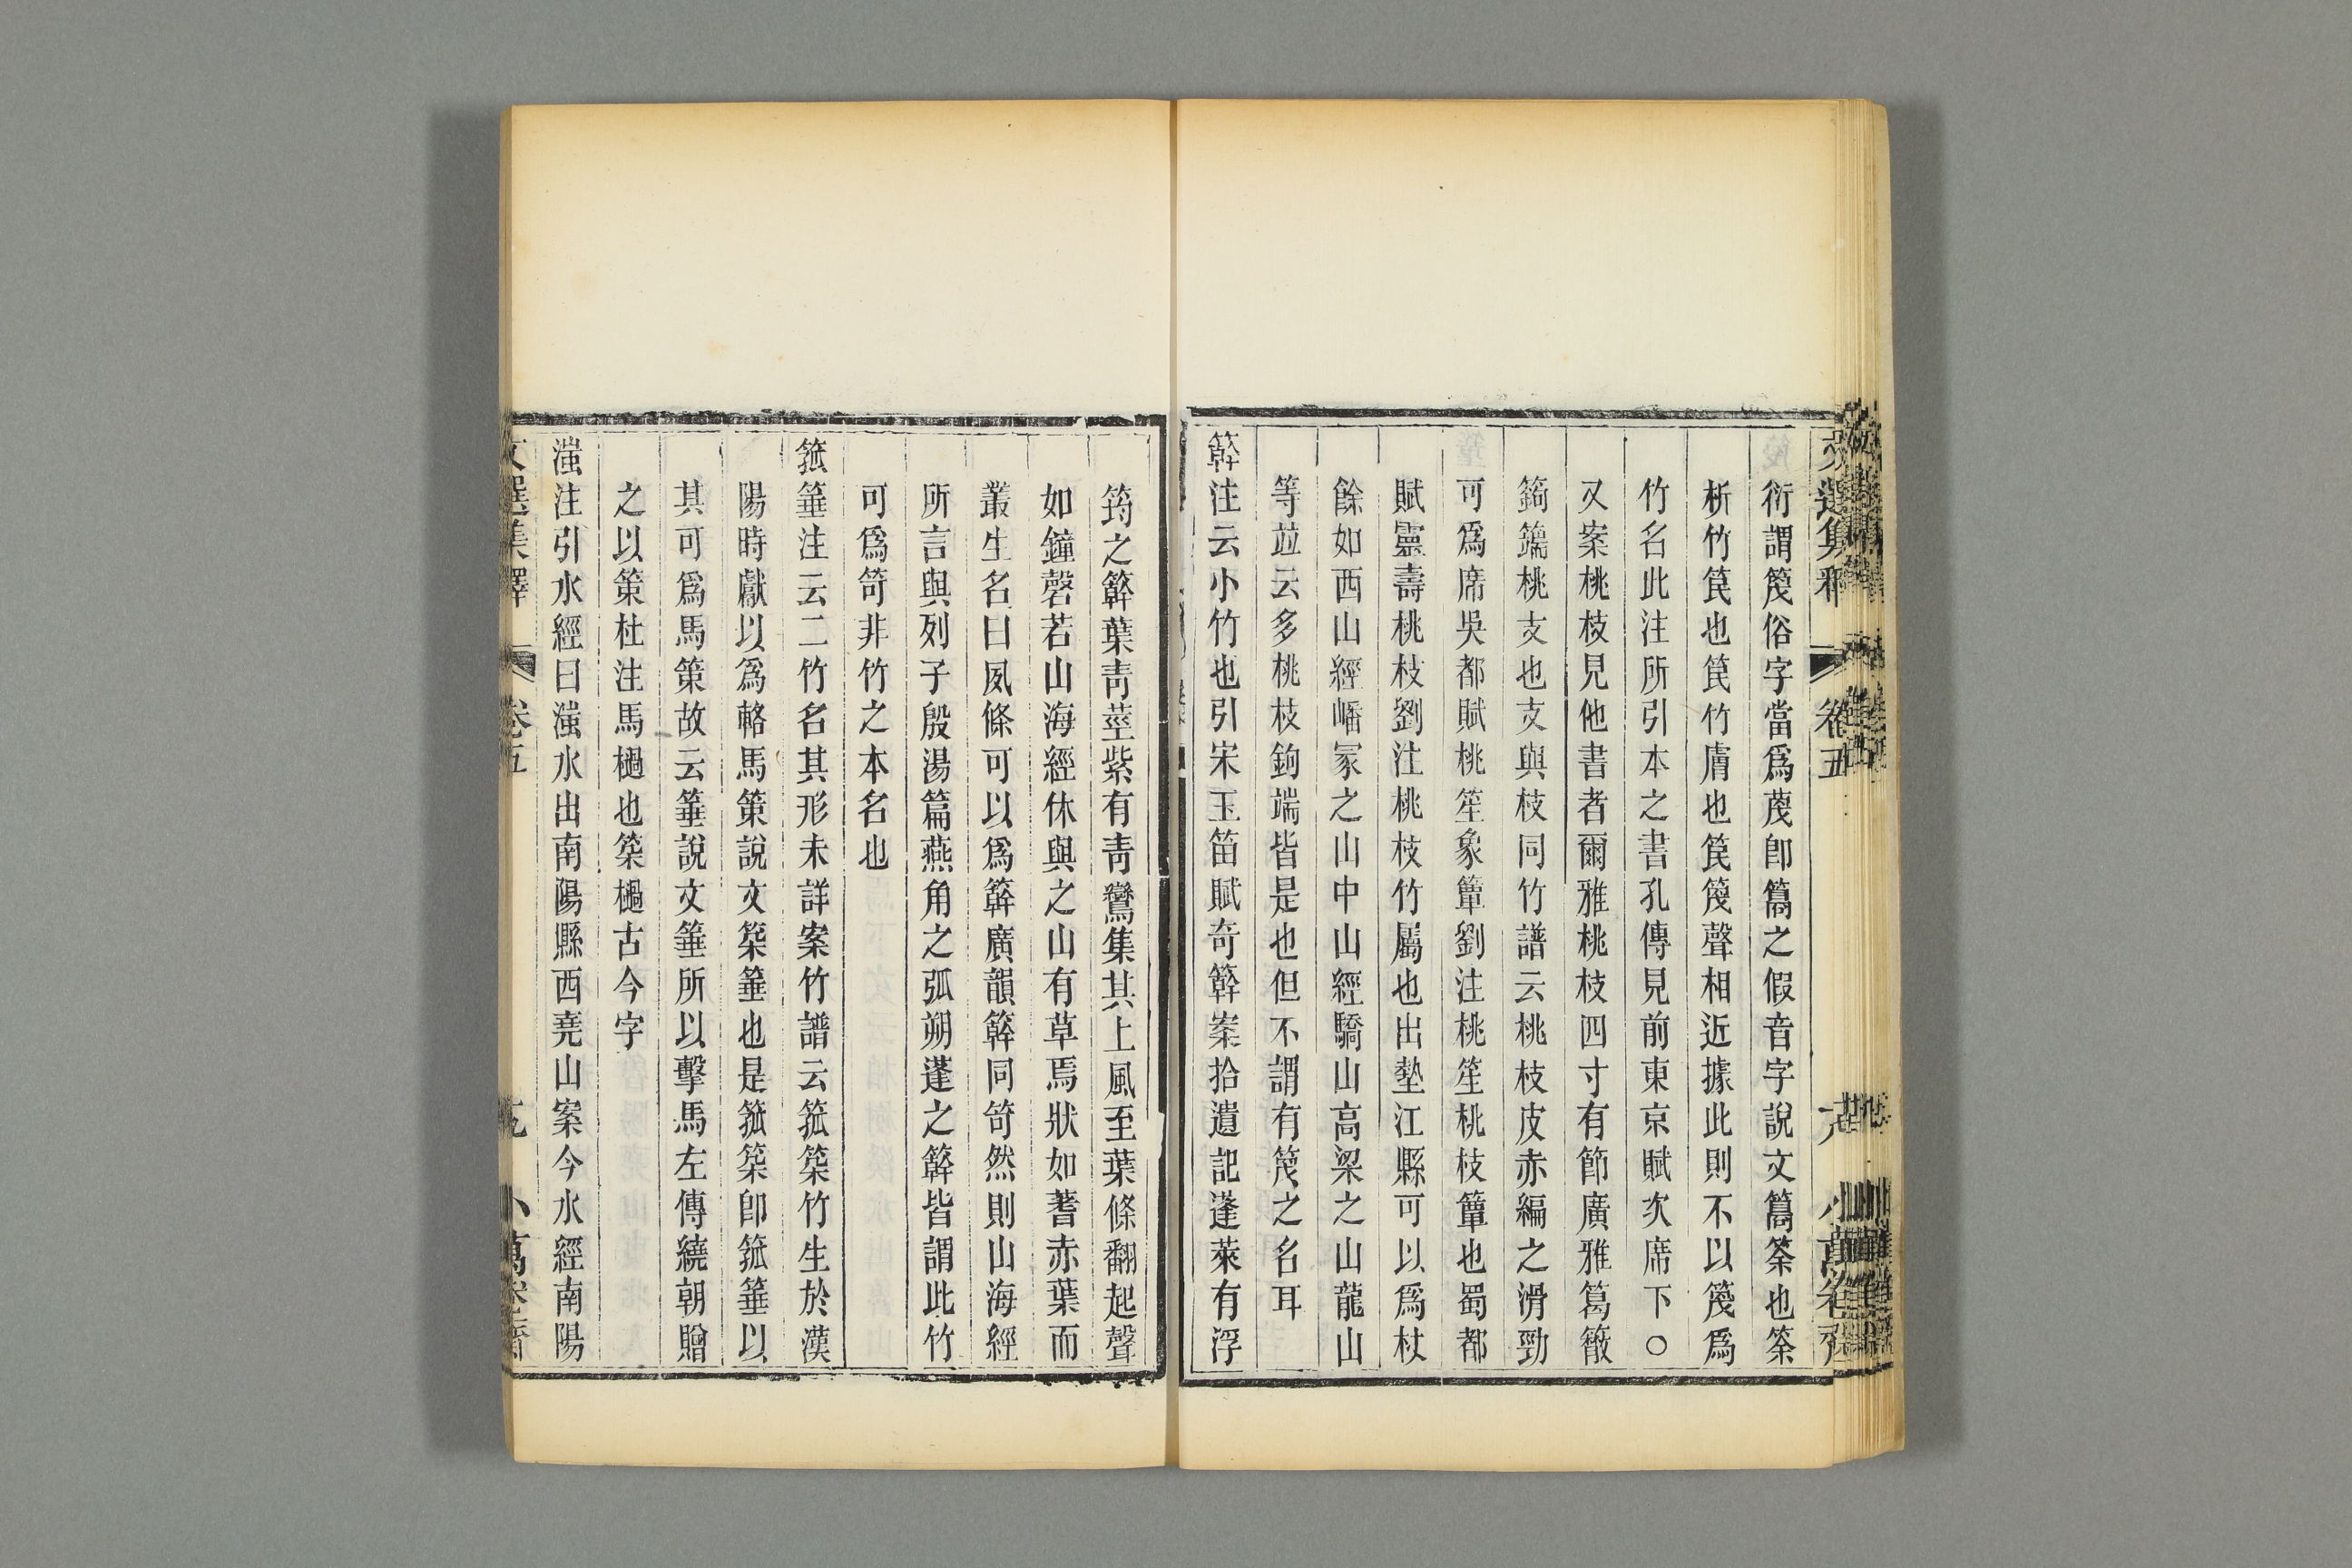 衍謂篾俗字當爲蔑卽䉲之假音字說文䉲筡也筡
析竹笢也笢竹膚也笢篾聲相近據此則不以篾爲
竹名此注所引本之書孔傳見前東京賦次席下○
又案桃枝見他書者爾雅桃枝四寸有節廣雅䈥䉛
䇹䉠桃支也支與枝同竹譜云桃枝皮赤編之滑勁
可爲席吳都賦桃笙象簟劉注桃笙桃枝簟也蜀都
賦靈壽桃枝劉注桃枝竹屬也出墊江縣可以爲杖
餘如西山經嶓冢之山中山經驕山高梁之山龍山
等竝云多桃枝鉤端皆是也但不謂有篾之名耳
簳注云小竹也引宋玉笛賦奇簳案拾遺記蓬萊有浮
筠之簳葉靑莖紫有靑鸞集其上風至葉條翻起聲
如鐘磬若山海經休與之山有草焉狀如蓍赤葉而
叢生名曰夙條可以爲簳廣韻簳同笴然則山海經
所言與列子殷湯篇燕角之弧朔蓬之簳皆謂此竹
可爲笴非竹之本名也
箛箠注云二竹名其形未詳案竹譜云箛䇲竹生於漢
陽時獻以爲輅馬策說文䇲箠也是箛䇲卽箛箠以
其可爲馬策故云箠說文箠所以擊馬左傳繞朝贈
之以策杜注馬檛也䇲檛古今字
滍注引水經曰滍水出南陽縣西堯山案今水經南陽
文選集釋 卷五 小萬卷齋